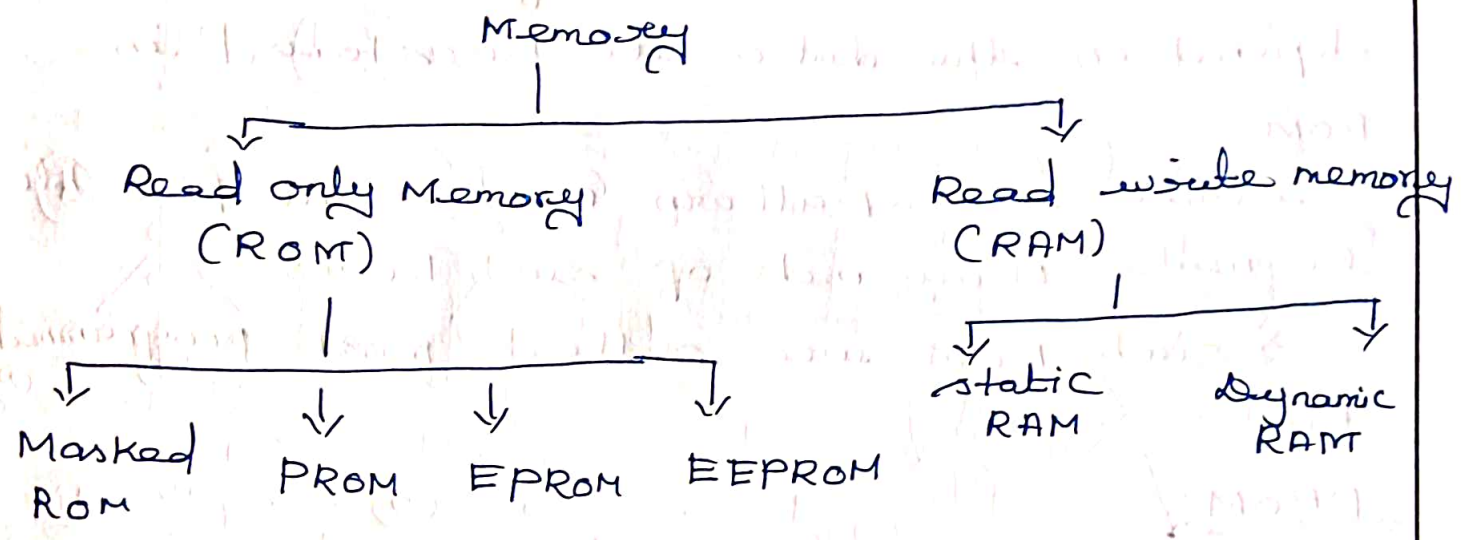 Memory
Read only Memory
(ROM)
Read write memory
(RAM)
Masked
ROM
PROM
EPROM
EEPROM
static
RAM
Dynamic
RAM